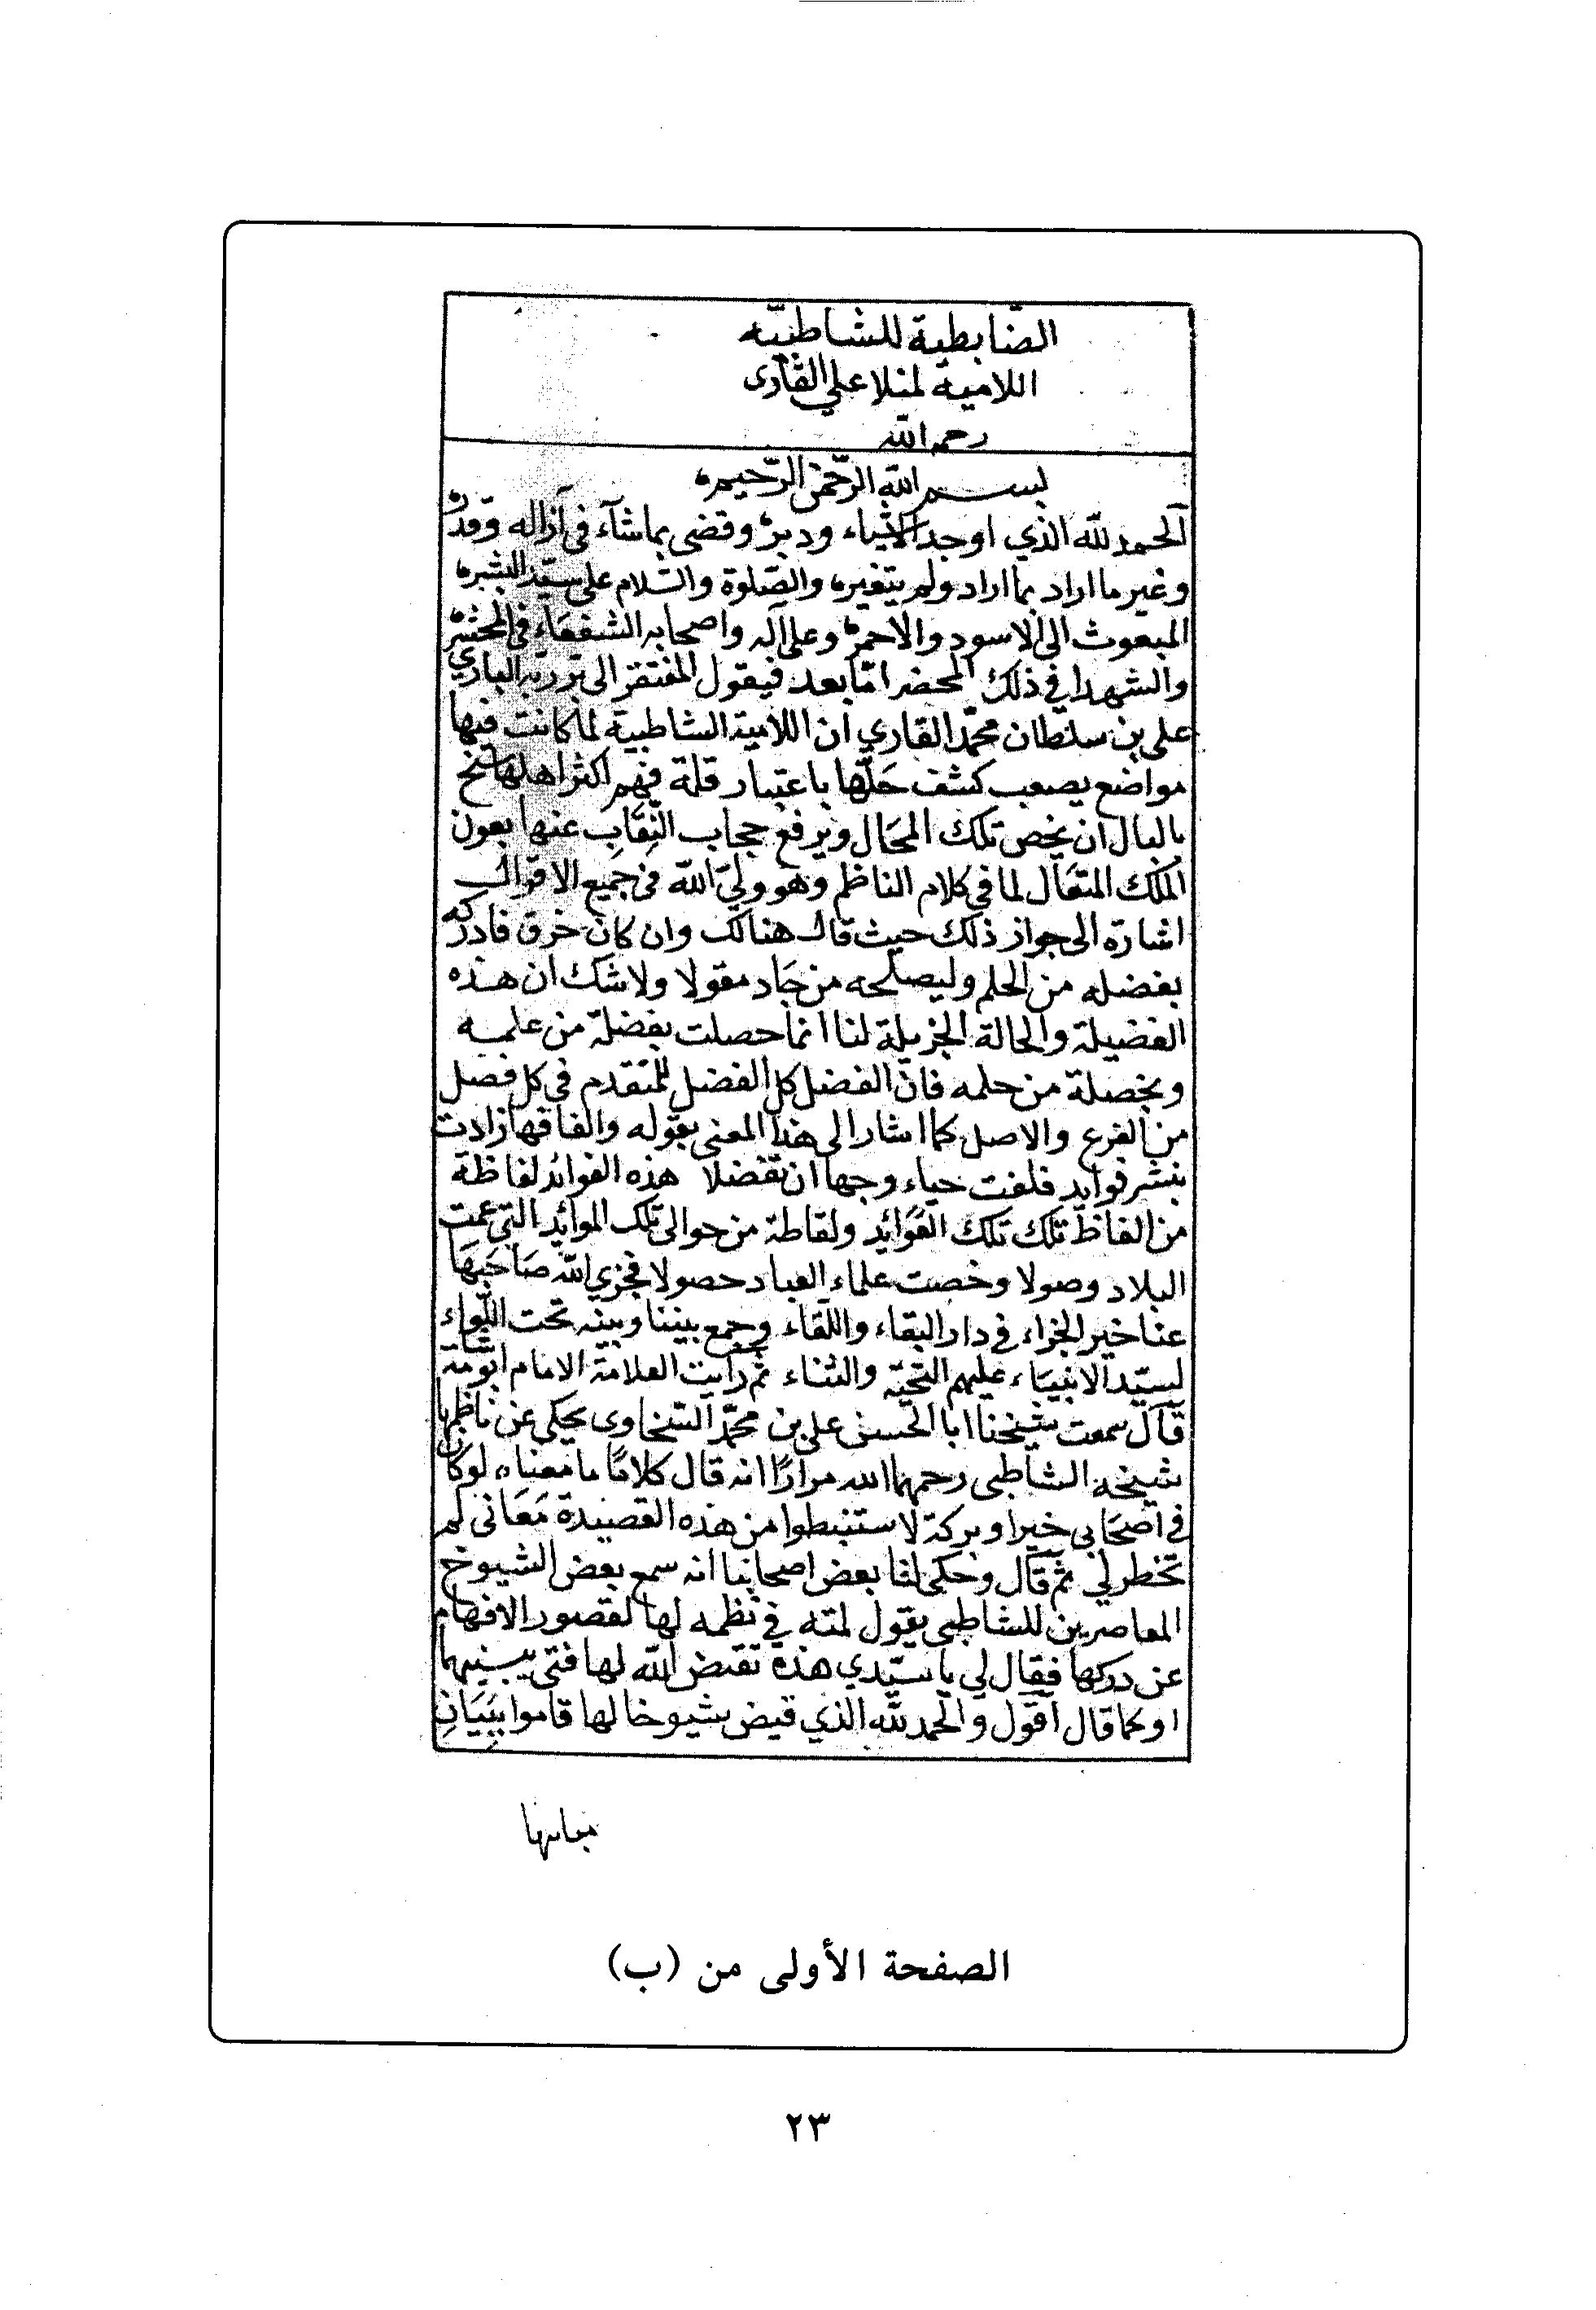 الضّابطية للشاطبيّه
اللامية لمنلا علي القارى
رحمه الله
بسم الله الرّحمن الرّحيم
الحمد لله الذي اوجد الاشياء ودبر وقضى بما شآء في آزاله وقدر
وغير ما اراد بما اراد ولم يتغير والصّلوة والسّلام على سيّد البشر
المبعوث الى الاسود والاحمر وعلى آله واصحابه الشفعاء في المحشر
والشهدا في ذلك المحضر امّا بعد فيقول المفتقر الى بر ربه الباري
علي بن سلطان محمّد القاري ان اللامية الشاطبية لما كانت فيها
مواضع يصعب كشف حلّها باعتبار قلة فهم اكثر اهلها سنح
بالبال ان يخص تلك المحال ويرفع حجاب النِقاب عنها بعون
الملك المتعال لما في كلام الناظم وهو وليّ الله في جميع الاقوال
اشارة الى جواز ذلك حيث قال هنالك وان كان خرق فادركه
بفضله من الحلم وليصلحه من جاد مقولا ولا شك ان هذه
الفضيلة والحالة الجزيلة لنا انما حصلت بفضلة من علمه
وبخصلة من حلمه فانّ الفضل كل الفضل للمتقدم في كل فصل
من الفرع والاصل كما اشار الى هذا المعنى بقوله والفافها زادت
بنشر فوايد فلفت حياء وجهها ان تفضلا هذه الفوائد لفاظة
من الفاظ تلك تلك الفوائد ولقاطة من حوالى تلك الموائد التي عمت
البلاد وصولا وخصت علماء العباد حصولا فجزي الله صاحبها
عنا خير الجزاء في دار البقاء واللقاء وجمع بيننا وبينه تحت اللواء
لسيّد الانبياء عليهم التحية والثناء ثم رايت العلامة الامام ابو شامة
قال سمعت شيخنا ابا الحسن علي بن محمّد السّخاوى يحكي عن ناظمها
شيخه الشاطبي رحمهما الله مرارًا انه قال كلامًا ما معناه لو كان
في اصحابي خيرا وبركة لاستنبطوا من هذه القصيدة مَعَاني لم
تخطر لي ثم قال وحكى لنا بعض اصحابنا انه سمع بعض الشيوخ
المعاصرين للشاطبي يقول لمته في نظمه لها لقصور الافهام
عن دركها فقال لي يا سيّدي هذه تقيض الله لها فتى يبينها
او كما قال اقول والحمد لله الذي قيض شيوخا لها قاموا ببَيَانِ
معانيها
الصفحة الأولى من (ب)
٢٣